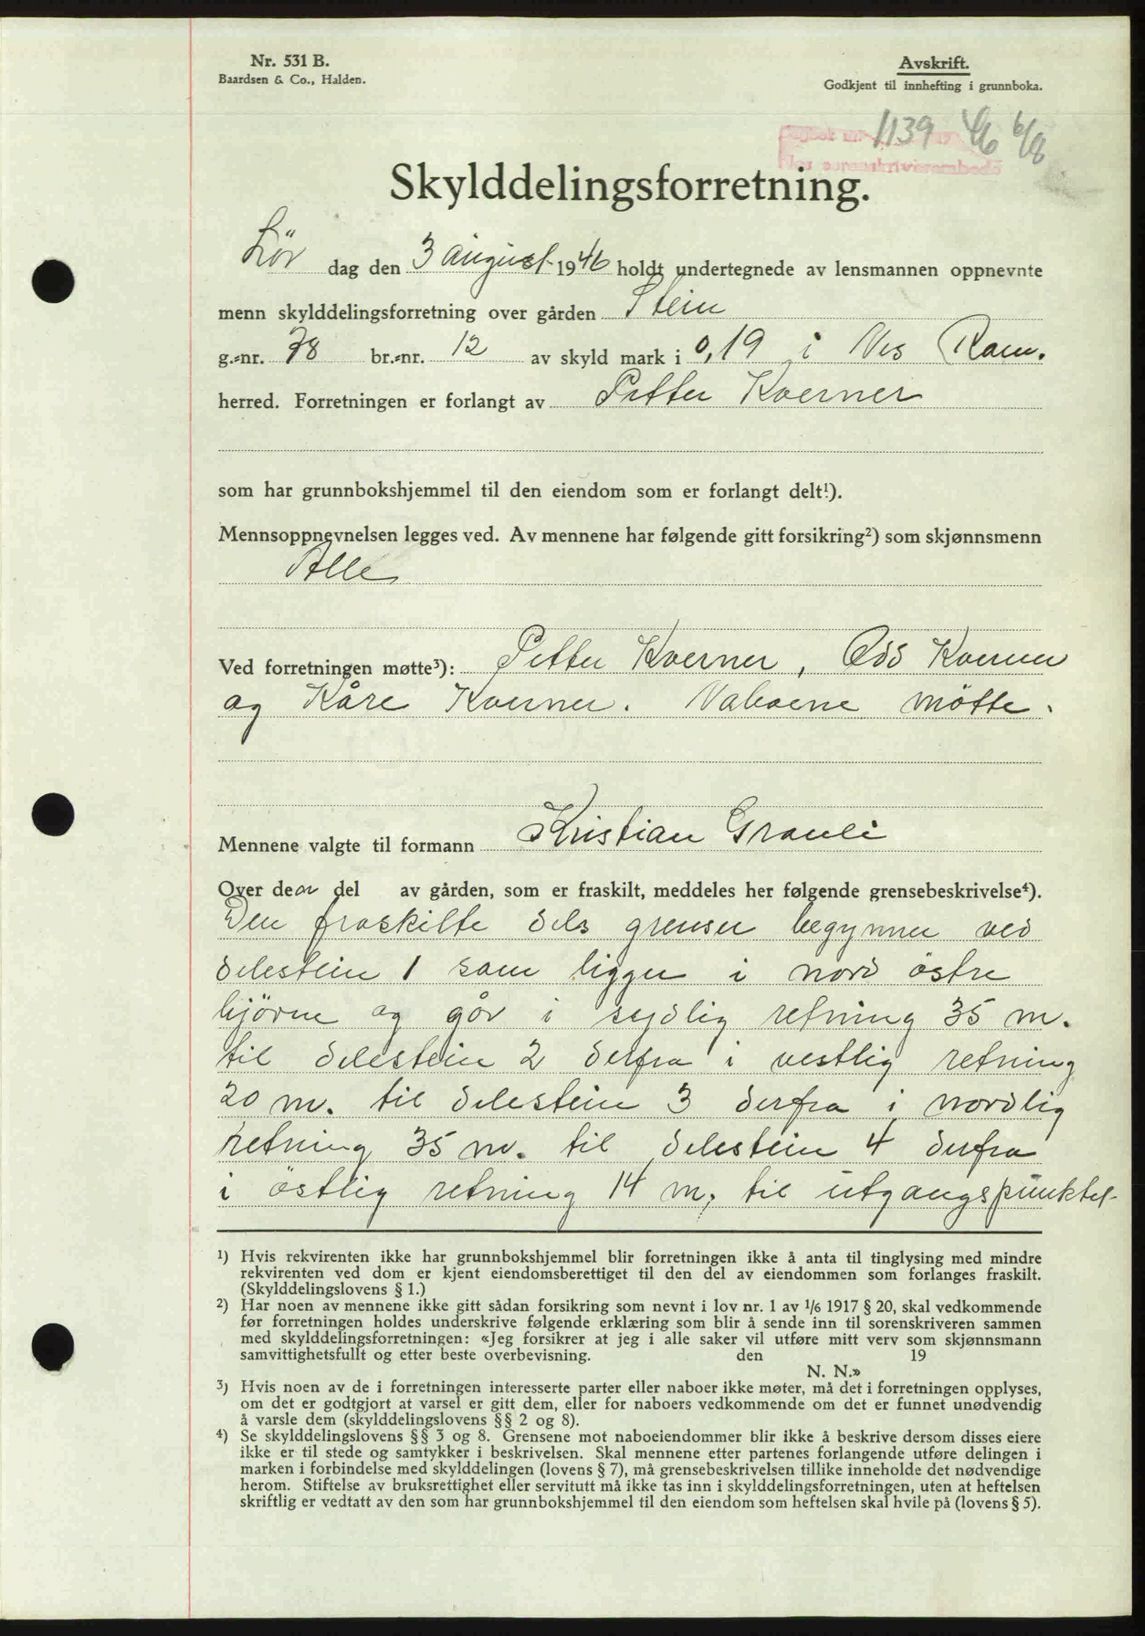 Nr. 531 B.
Baardsen & Co., Halden.
Avskrift.
Godkjent til innhefting i grunnboka.
1139 46 6/8
sorenskriverembede
Skylddelingsforretning.
Lør dag den 3 august 1946 holdt undertegnede av lensmannen oppnevnte
menn skylddelingsforretning over gården Stein
g.-nr. 78 br.-nr. 12 av skyld mark i 0,19 i Nes Rom.
herred. Forretningen er forlangt av Petter Kverner
som har grunnbokshjemmel til den eiendom som er forlangt delt¹).
Mennsoppnevnelsen legges ved. Av mennene har følgende gitt forsikring²) som skjønnsmenn
Alle
Ved forretningen møtte³): Petter Kverner, Odd Kverner
og Kåre Kverner. Naboene møtte.
Mennene valgte til formann Kristian Grauli
Over den del av gården, som er fraskilt, meddeles her følgende grensebeskrivelse⁴).
Den fraskilte dels grenser begynner ved
delestein 1 som ligger i nord østre
hjørne og går i sydlig retning 35 m.
til delestein 2 derfra i vestlig retning
20 m. til delestein 3 derfra i nordlig
retning 35 m. til delestein 4 derfra
i østlig retning 14 m. til utgangspunktet
¹) Hvis rekvirenten ikke har grunnbokshjemmel blir forretningen ikke å anta til tinglysing med mindre
rekvirenten ved dom er kjent eiendomsberettiget til den del av eiendommen som forlanges fraskilt.
(Skylddelingslovens § 1.)
²) Har noen av mennene ikke gitt sådan forsikring som nevnt i lov nr. 1 av 1/6 1917 § 20, skal vedkommende
før forretningen holdes underskrive følgende erklæring som blir å sende inn til sorenskriveren sammen
med skylddelingsforretningen: «Jeg forsikrer at jeg i alle saker vil utføre mitt verv som skjønnsmann
samvittighetsfullt og etter beste overbevisning. den 19
N. N.»
³) Hvis noen av de i forretningen interesserte parter eller naboer ikke møter, må det i forretningen opplyses,
om det er godtgjort at varsel er gitt dem, eller for naboers vedkommende om det er funnet unødvendig
å varsle dem (skylddelingslovens §§ 2 og 8).
⁴) Se skylddelingslovens §§ 3 og 8. Grensene mot naboeiendommer blir ikke å beskrive dersom disses eiere
ikke er til stede og samtykker i beskrivelsen. Skal mennene etter partenes forlangende utføre delingen i
marken i forbindelse med skylddelingen (lovens § 7), må grensebeskrivelsen tillike inneholde det nødvendige
herom. Stiftelse av bruksrettighet eller servitutt må ikke tas inn i skylddelingsforretningen, uten at heftelsen
skriftlig er vedtatt av den som har grunnbokshjemmel til den eiendom som heftelsen skal hvile på (lovens § 5).